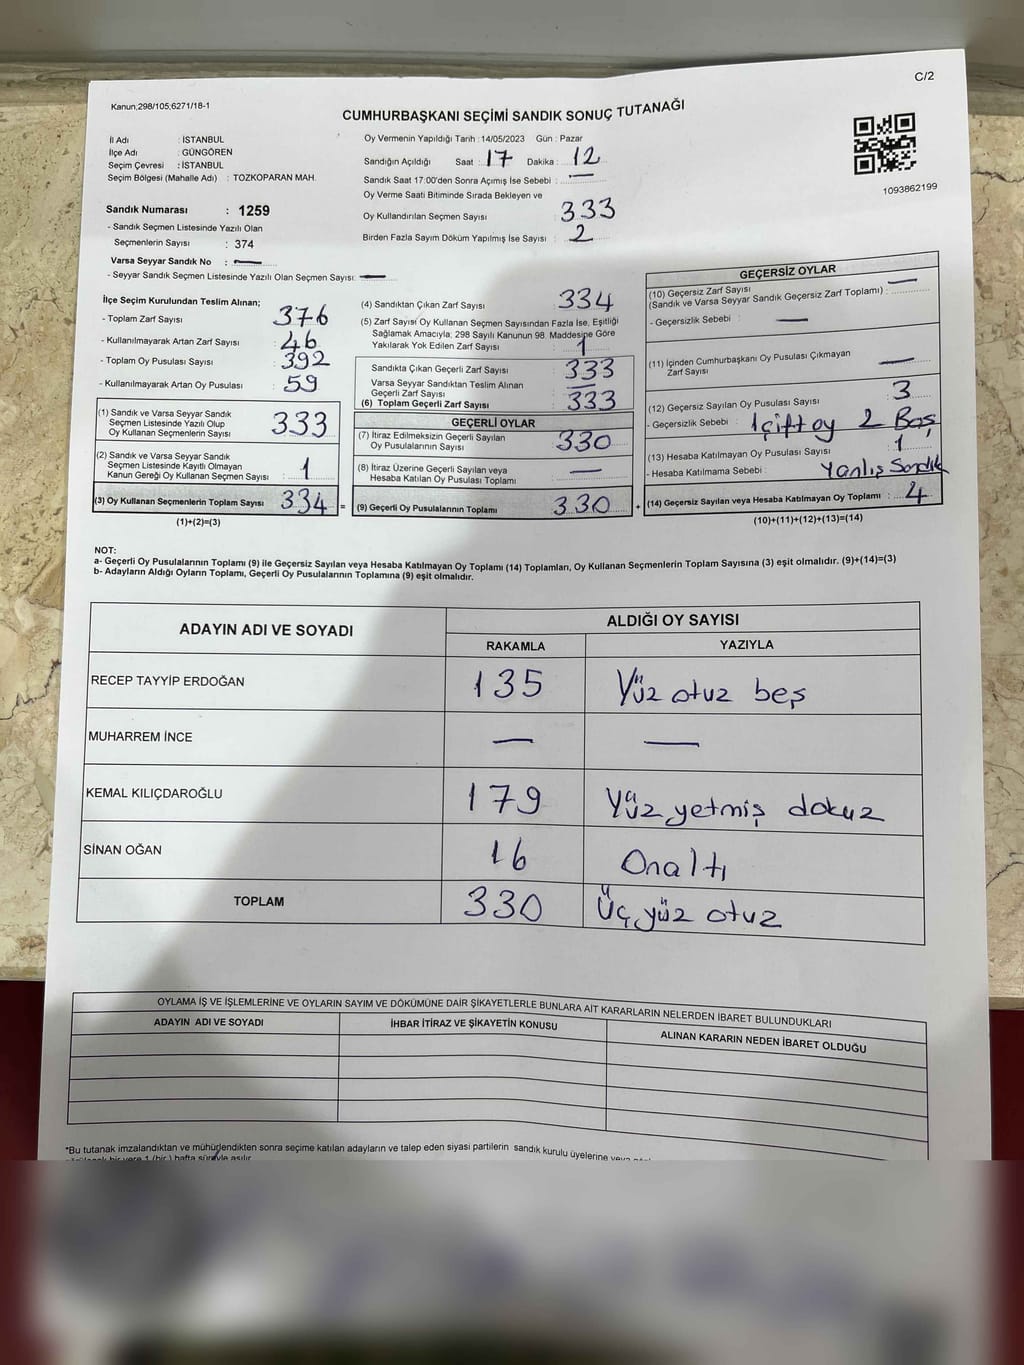 C/2
Kanun;298/105,6271/18-1
CUMHURBAŞKANI SEÇİMİ SANDIK SONUÇ TUTANAĞI
İl Adı : İSTANBUL
İlçe Adı : GÜNGÖREN
Seçim Çevresi : İSTANBUL
Seçim Bölgesi (Mahalle Adı) : TOZKOPARAN MAH.
Sandık Numarası : 1259
- Sandık Seçmen Listesinde Yazılı Olan
Seçmenlerin Sayısı : 374
Varsa Seyyar Sandık No : —
- Seyyar Sandık Seçmen Listesinde Yazılı Olan Seçmen Sayısı: —
Oy Vermenin Yapıldığı Tarih : 14/05/2023 Gün : Pazar
Sandığın Açıldığı Saat : 17 Dakika : 12
Sandık Saat 17:00'den Sonra Açımış İse Sebebi : —
Oy Verme Saati Bitiminde Sırada Bekleyen ve
Oy Kullandırılan Seçmen Sayısı : 333
Birden Fazla Sayım Döküm Yapılmış İse Sayısı : 2
1093862199
İlçe Seçim Kurulundan Teslim Alınan;
- Toplam Zarf Sayısı 376
- Kullanılmayarak Artan Zarf Sayısı : 46
- Toplam Oy Pusulası Sayısı : 392
- Kullanılmayarak Artan Oy Pusulası : 59
(1) Sandık ve Varsa Seyyar Sandık
Seçmen Listesinde Yazılı Olup
Oy Kullanan Seçmenlerin Sayısı : 333
(2) Sandık ve Varsa Seyyar Sandık
Seçmen Listesinde Kayıtlı Olmayan
Kanun Gereği Oy Kullanan Seçmen Sayısı : 1
(3) Oy Kullanan Seçmenlerin Toplam Sayısı : 334 =
(1)+(2)=(3)
(4) Sandıktan Çıkan Zarf Sayısı : 334
(5) Zarf Sayısı Oy Kullanan Seçmen Sayısından Fazla İse, Eşitliği
Sağlamak Amacıyla; 298 Sayılı Kanunun 98. Maddesine Göre
Yakılarak Yok Edilen Zarf Sayısı : 1
Sandıkta Çıkan Geçerli Zarf Sayısı : 333
Varsa Seyyar Sandıktan Teslim Alınan
Geçerli Zarf Sayısı : —
(6) Toplam Geçerli Zarf Sayısı : 333
GEÇERLİ OYLAR
(7) İtiraz Edilmeksizin Geçerli Sayılan
Oy Pusulasının Sayısı : 330
(8) İtiraz Üzerine Geçerli Sayılan veya
Hesaba Katılan Oy Pusulası Toplamı : —
(9) Geçerli Oy Pusulalarının Toplamı : 330 +
GEÇERSİZ OYLAR
(10) Geçersiz Zarf Sayısı
(Sandık ve Varsa Seyyar Sandık Geçersiz Zarf Toplamı) : —
- Geçersizlik Sebebi : —
(11) İçinden Cumhurbaşkanı Oy Pusulası Çıkmayan
Zarf Sayısı : —
(12) Geçersiz Sayılan Oy Pusulası Sayısı : 3
- Geçersizlik Sebebi : 1 çift oy 2 Boş
(13) Hesaba Katılmayan Oy Pusulası Sayısı : 1
- Hesaba Katılmama Sebebi : Yanlış Sandık
(14) Geçersiz Sayılan veya Hesaba Katılmayan Oy Toplamı : 4
(10)+(11)+(12)+(13)=(14)
NOT:
a- Geçerli Oy Pusulalarının Toplamı (9) ile Geçersiz Sayılan veya Hesaba Katılmayan Oy Toplamı (14) Toplamları, Oy Kullanan Seçmenlerin Toplam Sayısına (3) eşit olmalıdır. (9)+(14)=(3)
b- Adayların Aldığı Oyların Toplamı, Geçerli Oy Pusulalarının Toplamına (9) eşit olmalıdır.
ADAYIN ADI VE SOYADI ALDIĞI OY SAYISI
RAKAMLA YAZIYLA
RECEP TAYYİP ERDOĞAN 135 Yüz otuz beş
MUHARREM İNCE — —
KEMAL KILIÇDAROĞLU 179 Yüz yetmiş dokuz
SİNAN OĞAN 16 Onaltı
TOPLAM 330 Üç yüz otuz
OYLAMA İŞ VE İŞLEMLERİNE VE OYLARIN SAYIM VE DÖKÜMÜNE DAİR ŞİKAYETLERLE BUNLARA AİT KARARLARIN NELERDEN İBARET BULUNDUKLARI
ADAYIN ADI VE SOYADI İHBAR İTİRAZ VE ŞİKAYETİN KONUSU ALINAN KARARIN NEDEN İBARET OLDUĞU
*Bu tutanak imzalandıktan ve mühürlendikten sonra seçime katılan adayların ve talep eden siyasi partilerin sandık kurulu üyelerine veya
bir yere 1 (bir ) hafta süreyle asılır